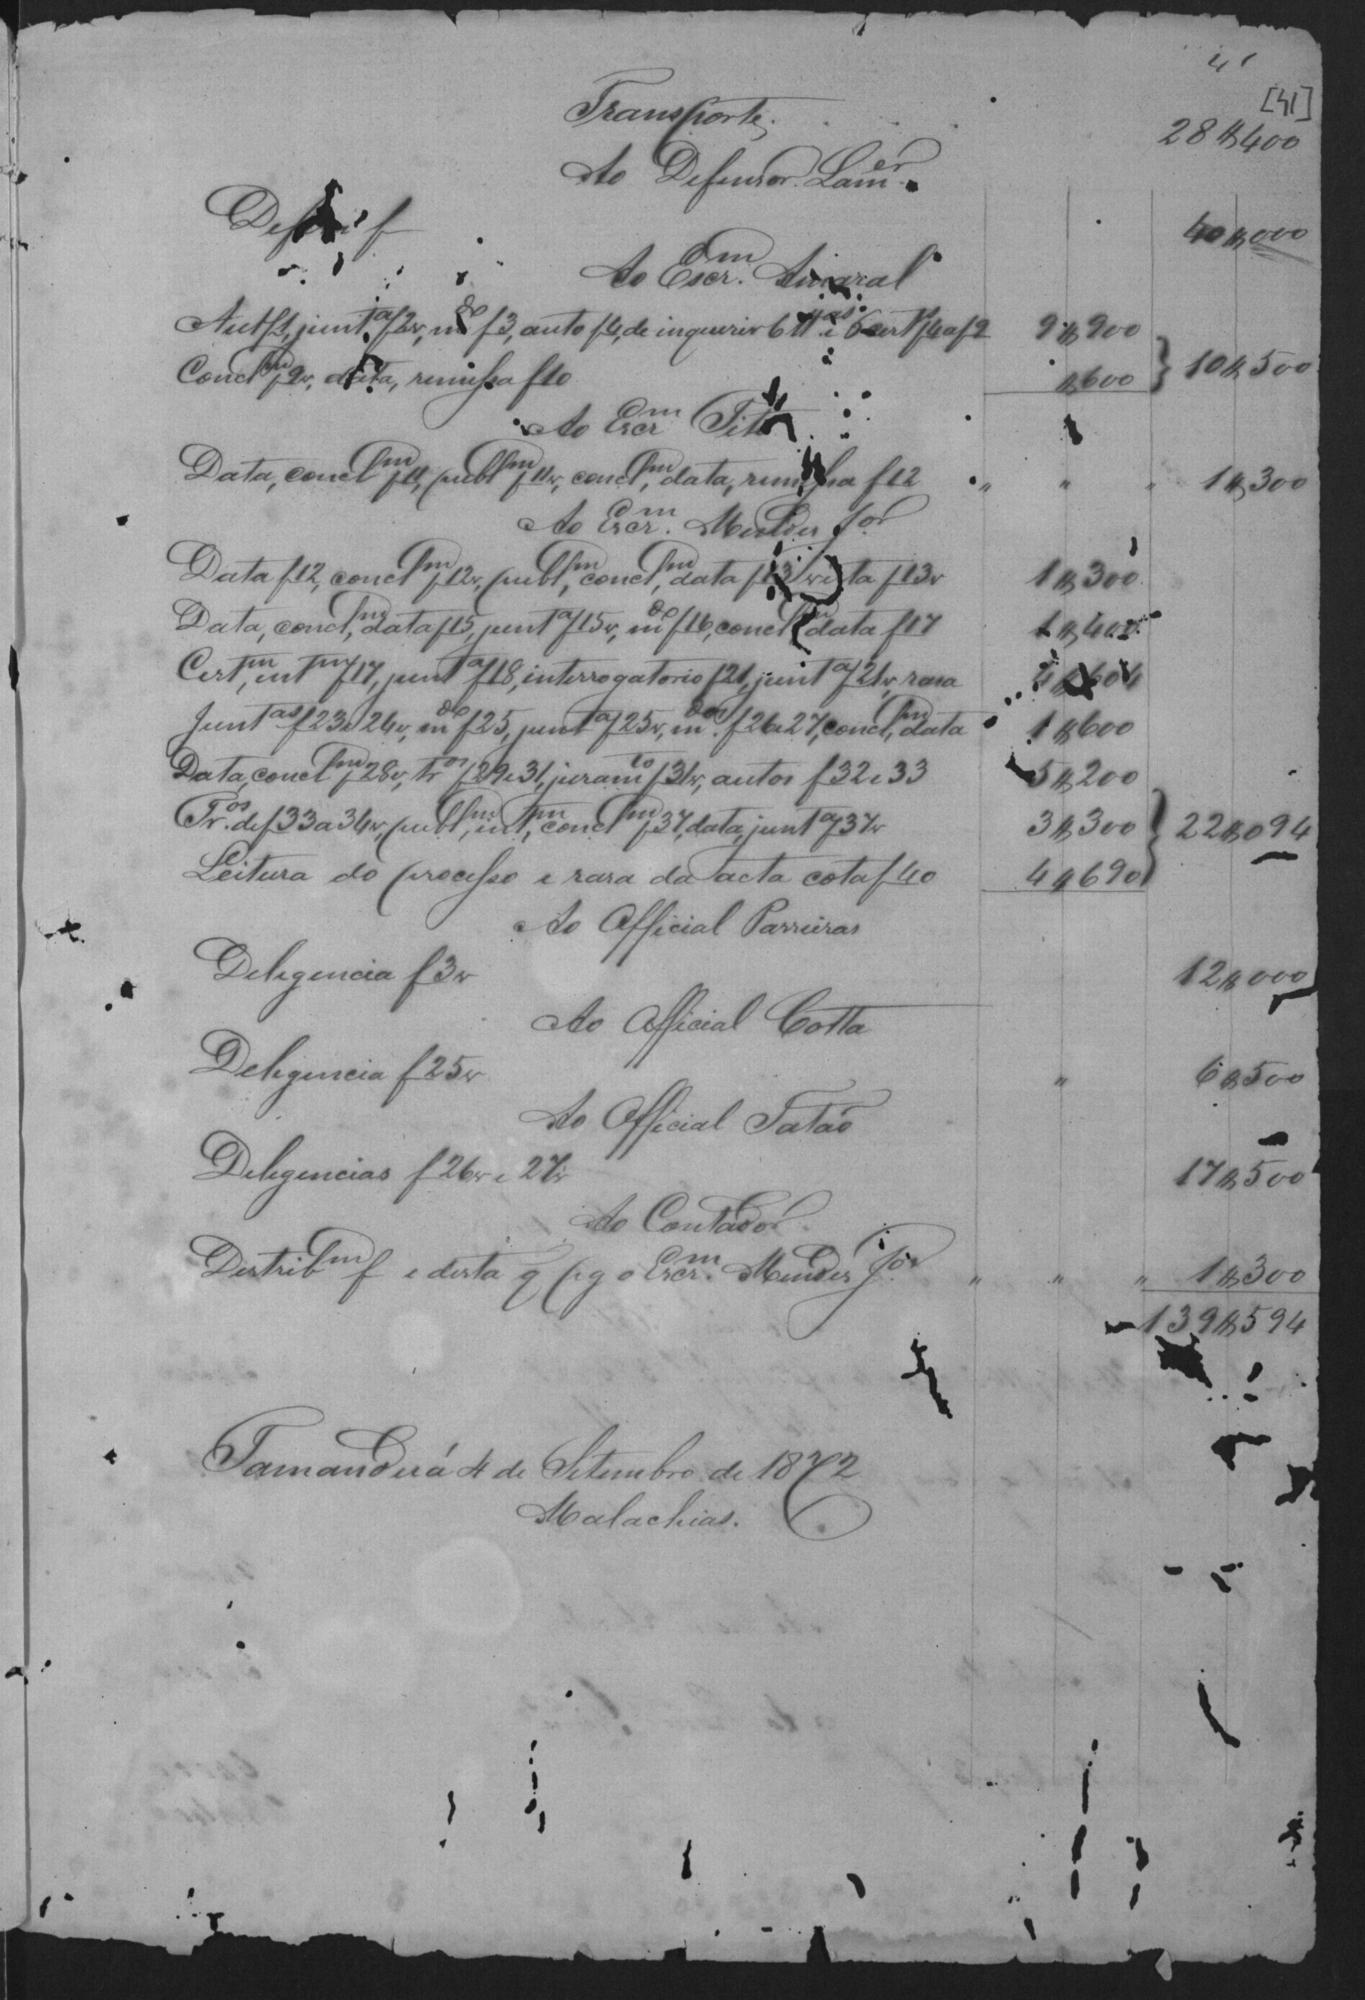 41
[41]
Transporte. 28$400
Ao Defensor Lam.er
Defesa f 40$000
Ao Escr.m Amaral
Aut f1, junt.a f2v, m.do f3, auto f4, de inquerir 6 tt.as e 6 cert.s f4 a f9 9$900
Concl.m f9v, data, remessa f10 $600 } 10$500
Ao Escr.m Tito
Data, concl.m f11, publ.m f11v, concl.m, data, remessa f12 " " " 1$300
Ao Escr.m Mendes J.or
Data f12, concl.m f12v, publ.m, concl.m, data f13, vista f13v 1$300
Data, concl.m, data f15, junt.a f15v, m.do f16, concl.m data f17 1$40
Cert.m, int.m f17, junt.a f18, interrogatorio f21, junt.a f21v, rasa 4$604
Junt.as f23 e 24v, m.do f25, junt.a f25v, m.dos f26 e 27, concl.m, data 1$600
Data, concl.m f28v, tr.os f29 e 31, juram.to f31v, autos f32 e 33 5$200
Tr.os de f33 a 34v, publ.m, int.m, concl.m f37, data, junt.a f37v 3$300 } 22$094
Leitura do processo e rasa da acta cota f40 4$690
Ao Official Parreiras
Deligencia f3v 12$000
Ao Official Cotta
Deligencia f25v " 6$500
Ao Official Tatão
Deligencias f26v e 27v 17$500
Ao Contador
Destrib.m f e desta q pg o Escr.m Mendes J.or " " " 1$300
139$594
Tamanduá 4 de Setembro de 1872
Malachias.